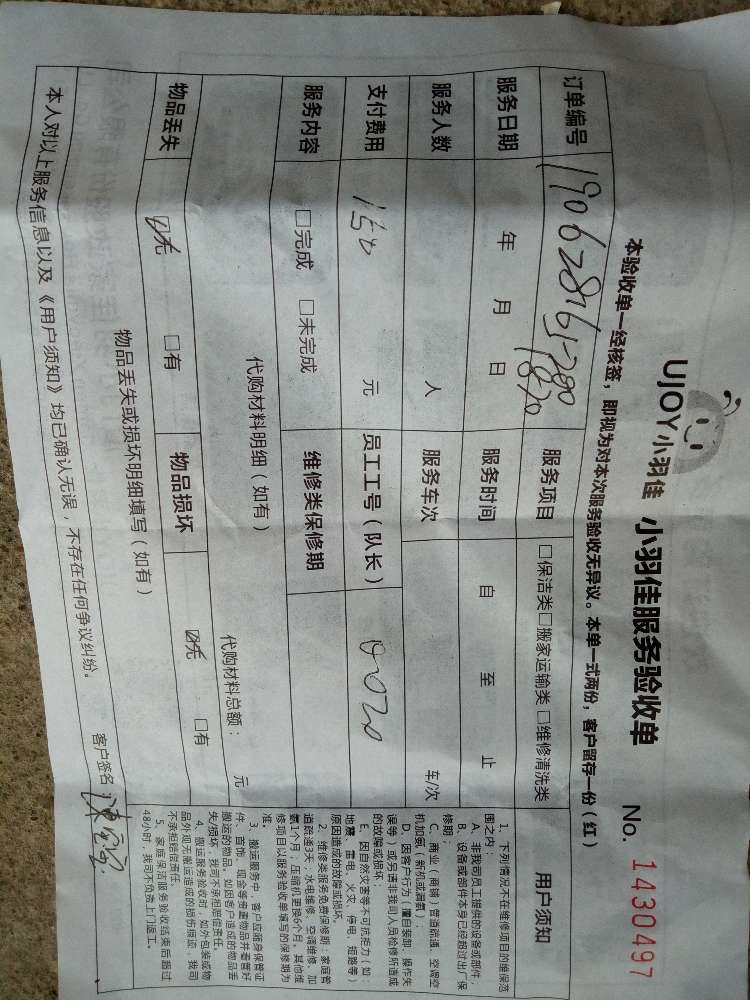 UJOY小羽佳 小羽佳服务验收单 No. 1430497
本验收单一经核签，即视为对本次服务验收无异议。本单一式两份，客户留存一份（红）
订单编号 服务项目 □保洁类□搬家运输类 □维修清洗类
服务日期 年 月 日 服务时间 自 至 止
服务人数 人 服务车次 车/次
支付费用 150 元 员工工号（队长）
服务内容 □完成 □未完成 维修类保修期
代购材料明细（如有） 代购材料总额： 元
物品丢失 ☑无 □有 物品损坏 ☑无 □有
物品丢失或损坏明细填写（如有）
本人对以上服务信息以及《用户须知》均已确认无误，不存在任何争议纠纷。
客户签名
用户须知
1、下列情况不在维修项目的维保范
围之内
A、非我司员工提供的设备或部件
B、设备或部件本身已经超过出厂保
修期
C、商业（商铺）管道疏通，空调空
机加氨（新机或漏氨）
D、因客户行为（擅自装卸、操作失
误等）或另请非我司人员检修所造成
的故障或损坏
E、因自然灾害等不可抗拒力（如：
地震、雷电、火灾、停电、短路等）
原因造成的故障或损坏
2、维修类服务免费保修期：家庭管
道疏通3天，水电维修、空调维修、加
氨1个月，压缩机更换6个月，其他维
修项目以服务验收单填写的保修期为
准。
3、搬运服务中，客户应随身保管证
件、首饰、现金等贵重物品并看管好
搬运的物品。如因客户造成的物品丢
失/损坏，我司不承担赔偿责任。
4、搬运服务验收时，如外包装或物
品外观无搬运造成的损伤痕迹，我司
不承担赔偿责任。
5、家庭保洁服务验收结束后超过
48小时，我司不负责上门返工。